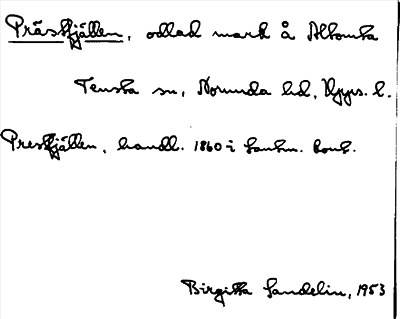 Prästfjällen, odlad mark å Altomta
Tensta sn, Norunda hd, Upps. l.
Prestfjällen, handl. 1860 i Lantm. kont.
Birgitta Sandelin, 1953